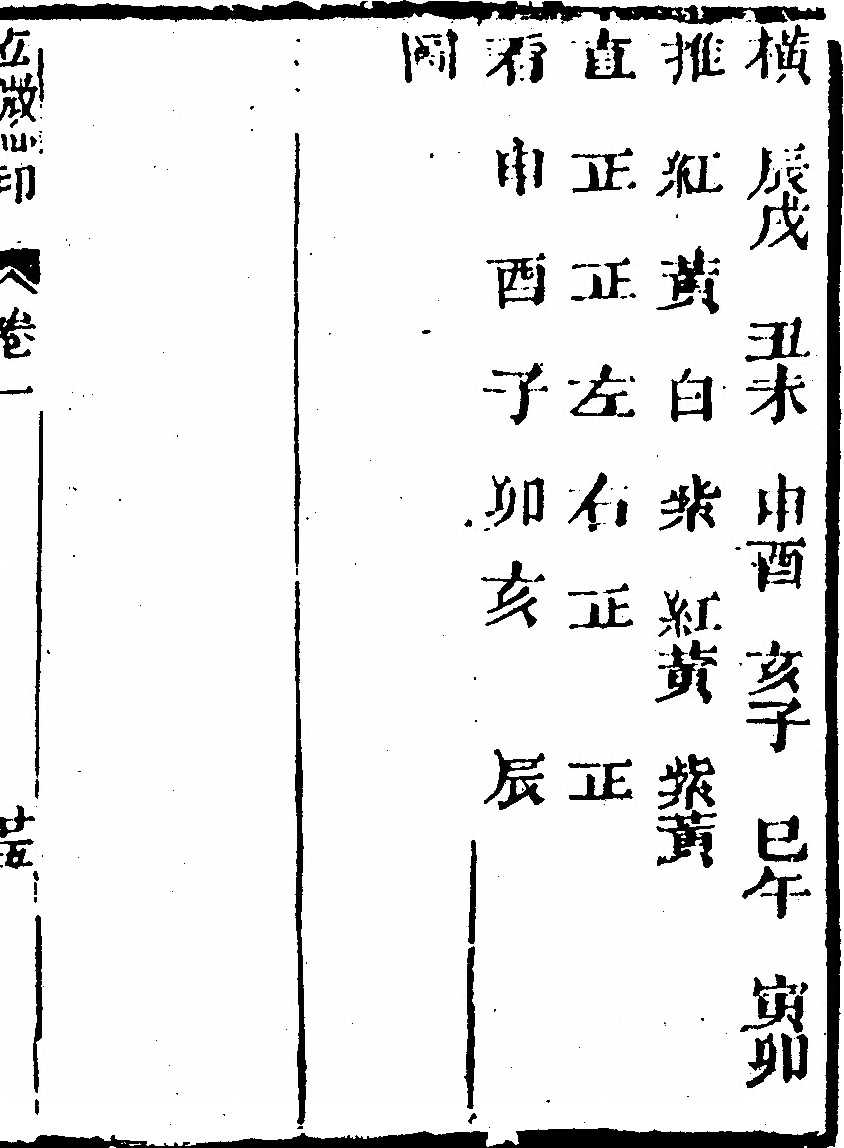 橫 辰戌 丑未 申酉 亥子 巳午 寅卯
推 紅 黃 白 紫 紅黃 紫黃
直 正 正 左 右 正 正
看 申 酉 子 卯 亥 辰
圖
心印 卷一 廿五